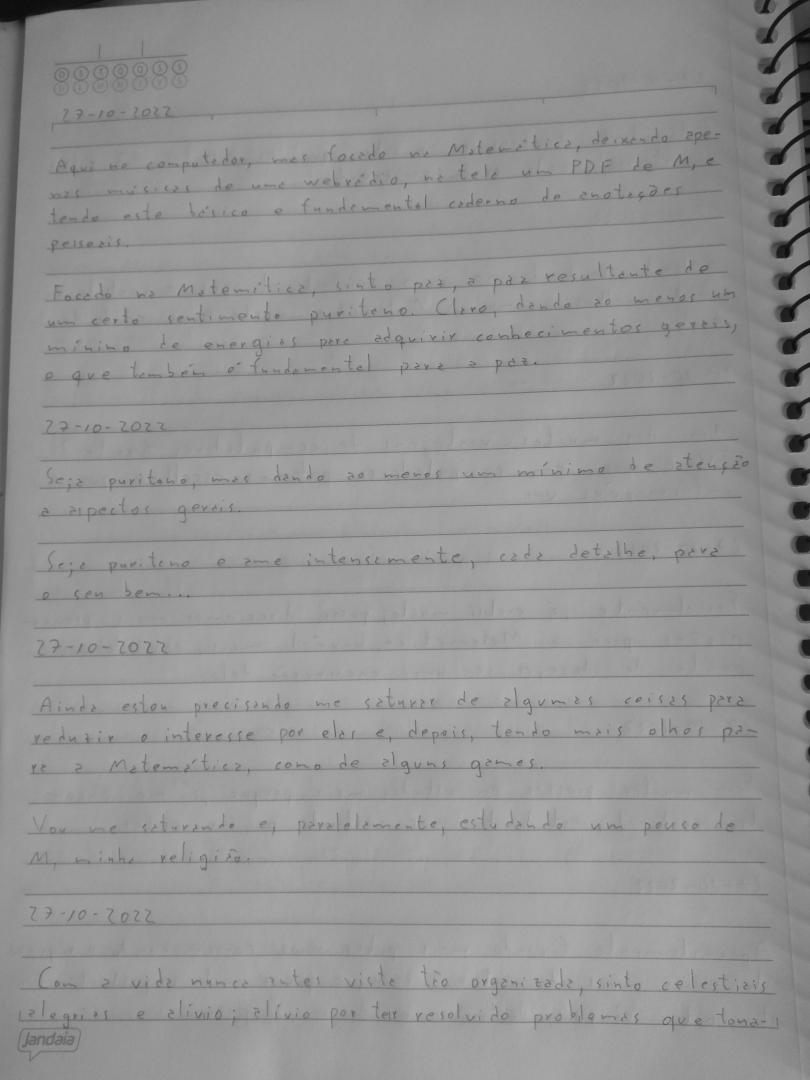 D S T Q Q S S
D L M M J V S
27-10-2022
Aqui no computador, mas focado na Matemática, deixando ape-
nas músicas de uma webrádio, na tela um PDF de M, e
tendo este básico e fundamental caderno de anotações
pessoais.
Focado na Matemática, sinto paz, a paz resultante de
um certo sentimento puritano. Claro, dando ao menos um
mínimo de energias para adquirir conhecimentos gerais,
o que também é fundamental para a paz.
27-10-2022
Seja puritano, mas dando ao menos um mínimo de atenção
a aspectos gerais.
Seja puritano e ame intensamente, cada detalhe, para
o seu bem...
27-10-2022
Ainda estou precisando me saturar de algumas coisas para
reduzir o interesse por elas e, depois, tendo mais olhos pa-
ra a Matemática, como de alguns games.
Vou me saturando e, paralelamente, estudando um pouco de
M, minha religião.
27-10-2022
Com a vida nunca antes vista tão organizada, sinto celestiais
alegrias e alívio; alívio por ter resolvido problemas que toma-
jandaia